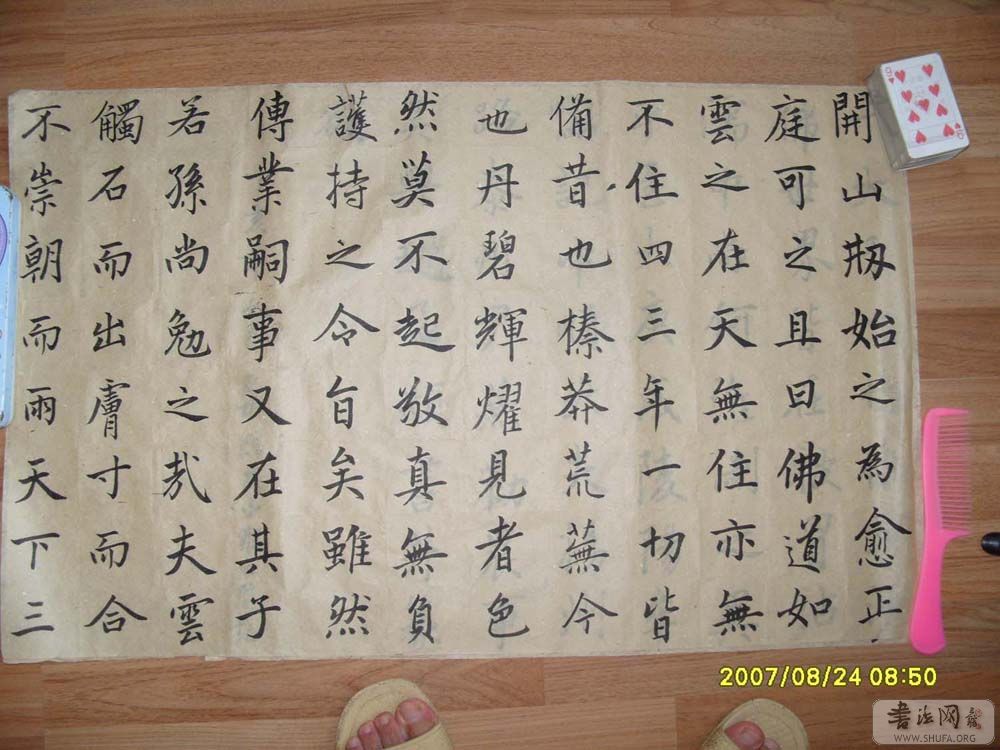 開山剏始之為愈正
庭可之且曰佛道如
雲之在天無住亦無
不住四三年一切皆
備昔也榛莽荒蕪今
也丹碧輝燿見者色
然莫不起敬真無負
護持之令旨矣雖然
傳業嗣事又在其子
若孫尚勉之哉夫雲
觸石而出膚寸而合
不崇朝而雨天下三
9
6
2007/08/24 08:50
书法网
WWW.SHUFA.ORG